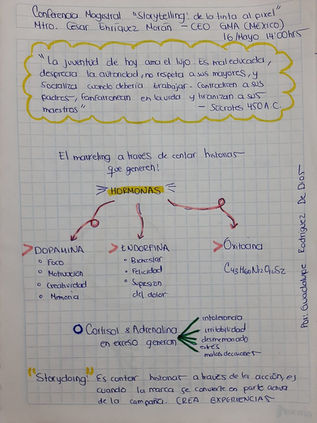 Conferencia Magistral "Storytelling: de la tinta al pixel"
Mtro. César Enríquez Morán - CEO GMA (MÉXICO)
16 Mayo 14:00hrs
"La juventud de hoy ama el lujo. Es mal educada,
desprecia la autoridad, no respeta a sus mayores, y
socializa cuando debería trabajar. Contradicen a sus
padres, fanfarronean en la vida y tiranizan a sus
maestros"
- Sócrates 450 A.C.
El marketing a través de contar historias
que generen!
HORMONAS
> DOPAMINA
o Foco
o Motivación
o Creatividad
o Memoria
> ENDORFINA
o Bienestar
o Felicidad
o Supresión
del dolor
> Oxitocina
C43H66N12O12S2
Cortisol & Adrenalina
en exceso generan
intolerancia
irritabilidad
desmemoriado
estrés
malas decisiones
"Storydoing": Es contar historias a través de la acción, es
cuando la marca se convierte en parte activa
de la campaña. CREA EXPERIENCIAS
Por: Guadalupe Rodríguez De Dios